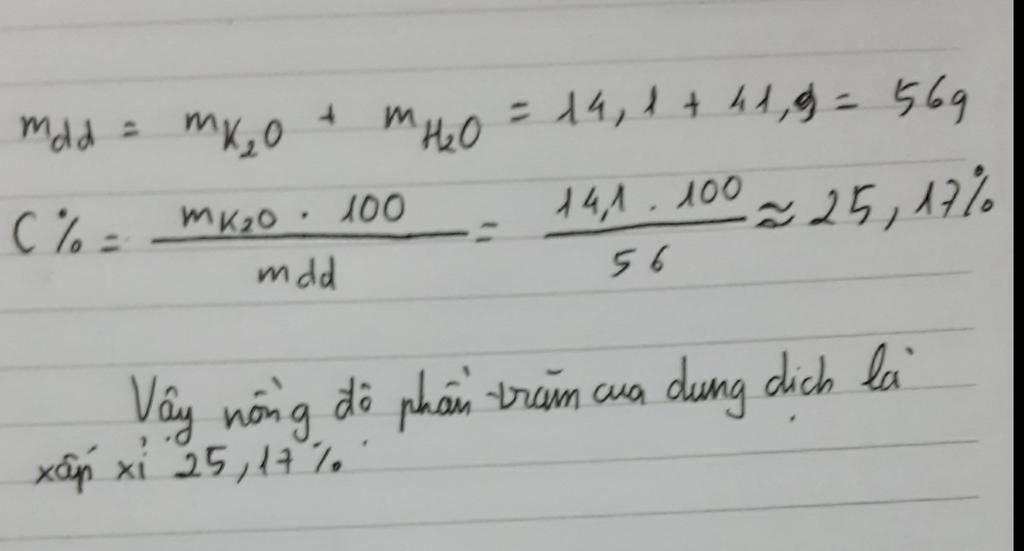 mdd = mK₂O + mH₂O = 14,1 + 41,9 = 56g
C% = mK₂O . 100 / mdd = 14,1 . 100 / 56 ≈ 25,17%
Vậy nồng độ phần trăm của dung dịch là
xấp xỉ 25,17%